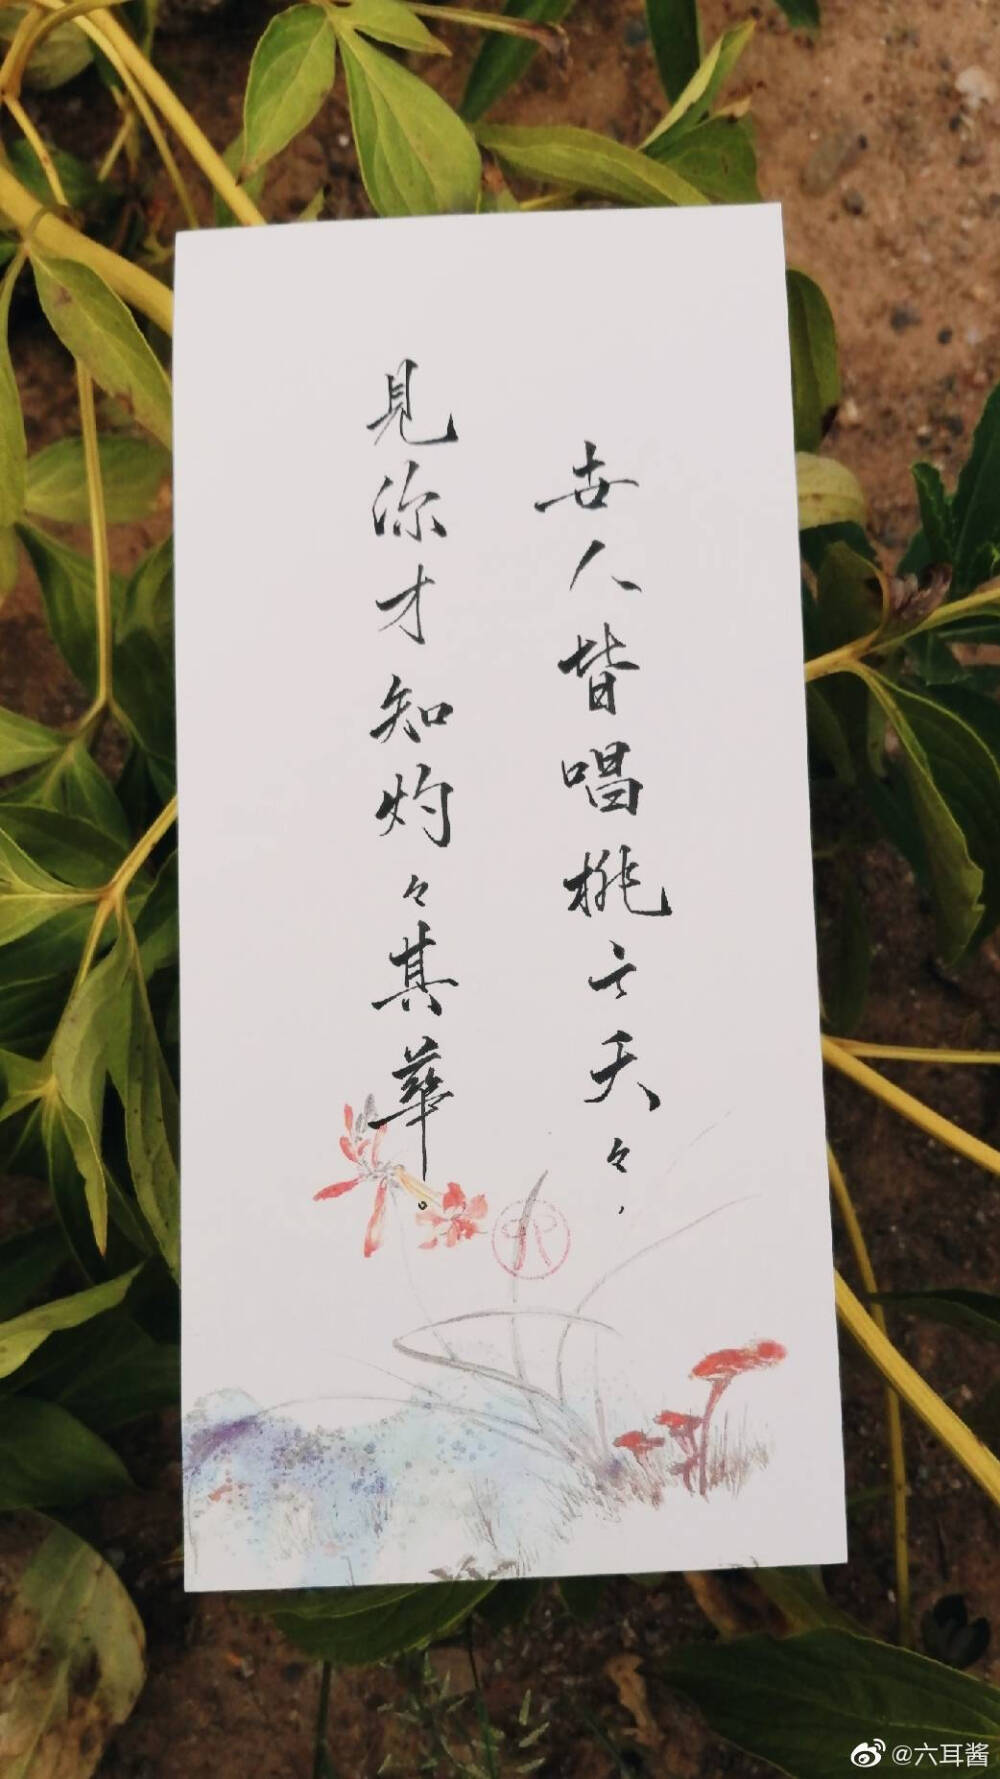 世人皆唱桃之夭々，
見你才知灼々其華。
@六耳酱